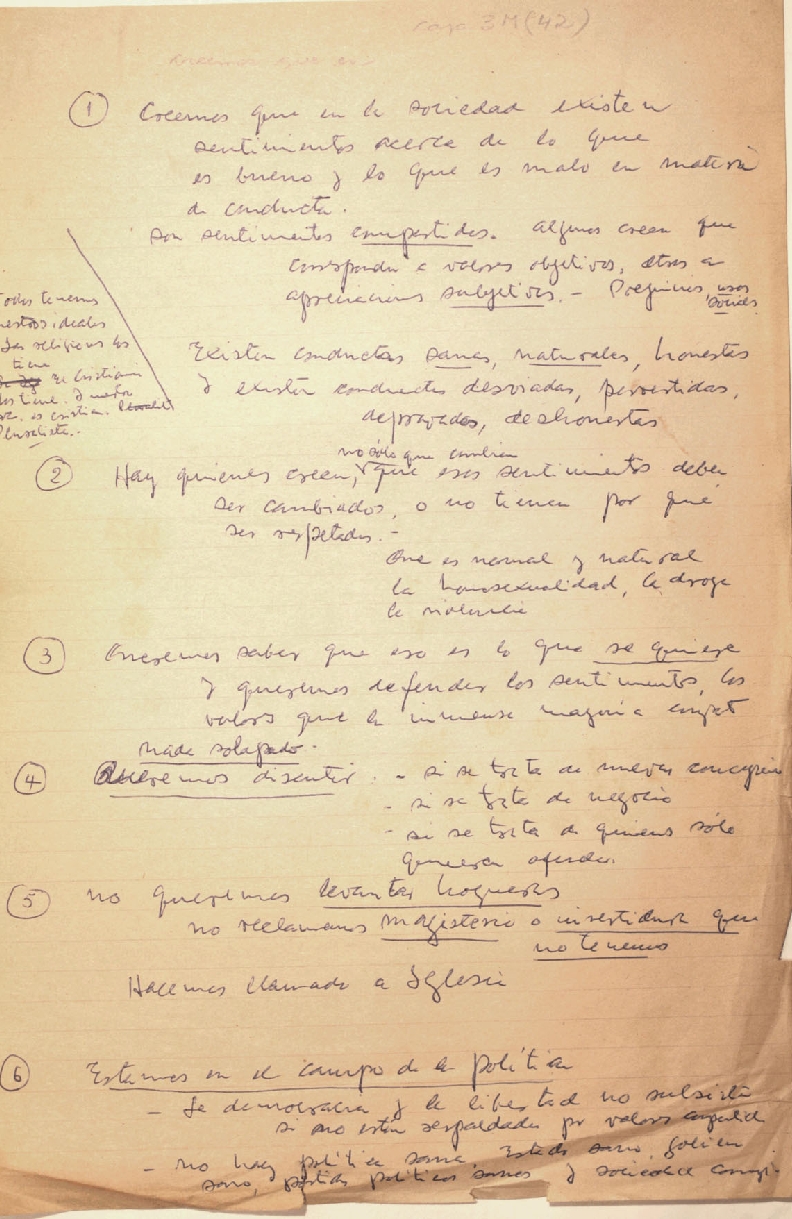 caja 3M (42)
① Creemos que en la sociedad existen
sentimientos acerca de lo que
es bueno y lo que es malo en materia
de conducta.
son sentimientos compartidos. Algunos creen que
corresponden a valores objetivos, otros a
apreciaciones subjetivas. - usos
sociales
Todos tenemos
nuestros ideales
Las religiones los
tiene
El cristiano
los tiene. Y nuestra
es cristiana.
Existen conductas sanas, naturales, honestas
y existen conductas desviadas, pervertidas,
depravadas, deshonestas
② Hay quienes creen, no sólo que cambian que esos sentimientos deben
ser cambiados, o no tienen por qué
ser respetados. -
Que es normal y natural
la homosexualidad, la droga
la violencia
③ Queremos saber que eso es lo que se quiere
y queremos defender los sentimientos, los
valores que la inmensa mayoría
nada solapado.
④ Queremos discutir: - si se trata de nuevas
- si se trata de negocio
- si se trata de quienes sólo
quieren ofender.
⑤ No queremos levantar hogueras
no reclamamos magisterio o investidura que
no tenemos
Hacemos llamado a Iglesia
⑥ Estamos en el campo de la política
- La democracia y la libertad no subsisten
si no están respaldadas por valores
- No hay política sana, Estado sano, gobierno
sano, partidos políticos sanos y sociedad